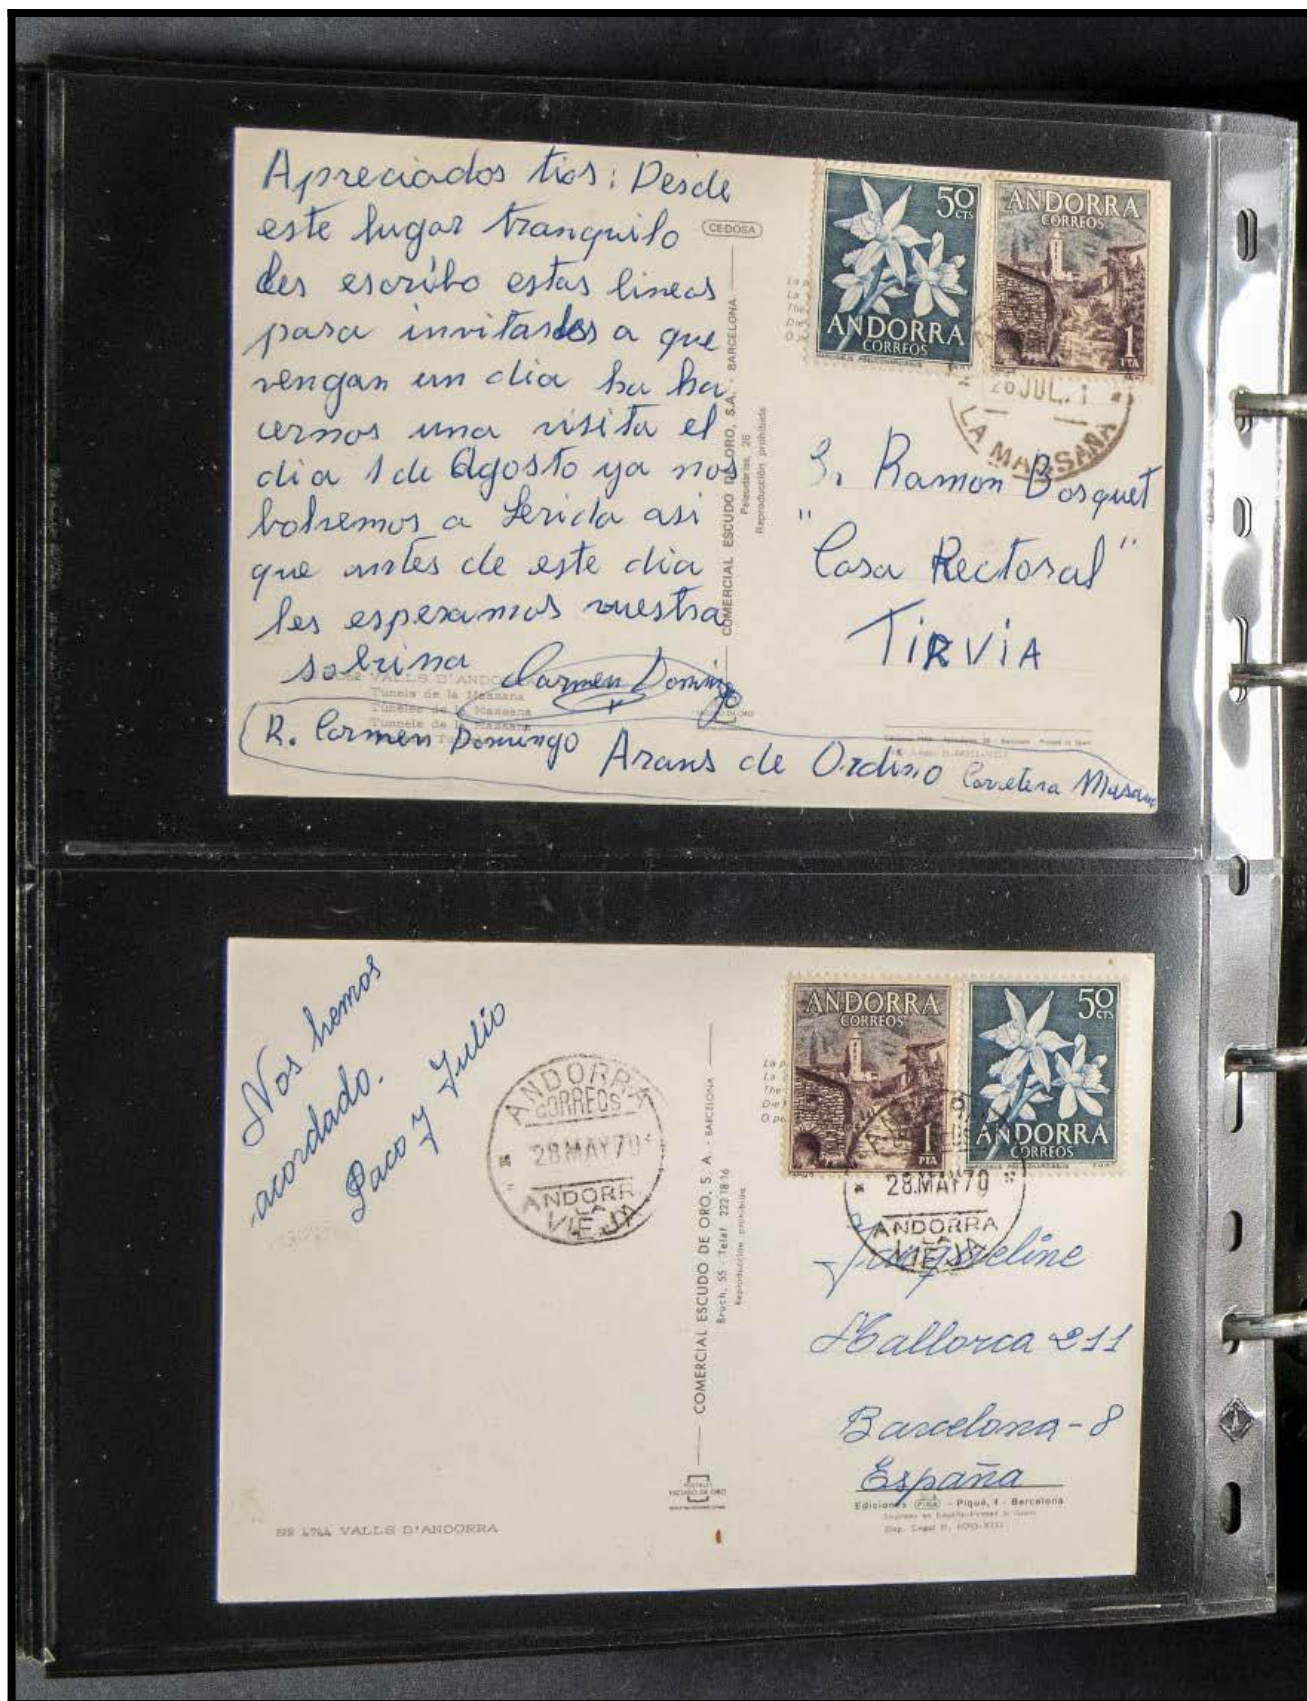 Apreciados tios: Desde
este lugar tranquilo
les escribo estas lineas
para invitarles a que
vengan un dia ha ha
cernos una visita el
dia 1 de Agosto ya nos
bolvemos a Lerida asi
que antes de este dia
les esperamos vuestra
sobrina Carmen Domingo
VALLS D'ANDO
Tunels de la Massana
Tuneles de la Massana
Tunnels de la Massana
R. Carmen Domingo Arans de Ordino Carretera Masana
CEDOSA
COMERCIAL ESCUDO DE ORO, S.A. - BARCELONA
Palaudarias, 26
Reproducción prohibida
50 CTS
ANDORRA
CORREOS
ANDORRA
CORREOS
1 PTA
26 JUL. 1
LA MASSANA
S. Ramon Bosquet
"Casa Rectoral"
TIRVIA
Nos hemos
acordado.
Paco y Julio
ANDORRA
CORREOS
28.MAY70
ANDORR
LA
VIEJA
COMERCIAL ESCUDO DE ORO, S. A. - BARCELONA
Bruch, 55 - Teléf. 222 18 16
Reproducción prohibida
POSTALES
ESCUDO DE ORO
Nº 4744 VALLS D'ANDORRA
ANDORRA
CORREOS
1 PTA
50 CTS
ANDORRA
CORREOS
28.MAY70
ANDORRA
LA
VIEJA
Jacqueline
Mallorca 211
Barcelona-8
España
Ediciones FISA - Piqué, 4 - Barcelona